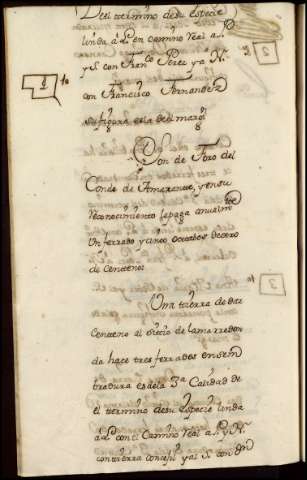 Del termino de su especie
linda a L. con camino Real a P.
y S. con Fran.co Perez y a N.
con Francisco Fernandez
su figura es la del marg.n
Son de Foro del
Conde de Amarante, y en su
reconocimiento se paga anualm.te
Un ferrado y cinco octabos de otro
de Centeno
Una tierra de dar
Centeno al sitio de lamarredon
da hace tres ferrados en sem
tradura es de la 3.a Calidad de
el termino de su especie linda
a L. con el Camino Real a P. y N.
con tierra concejil y al S. con d.n